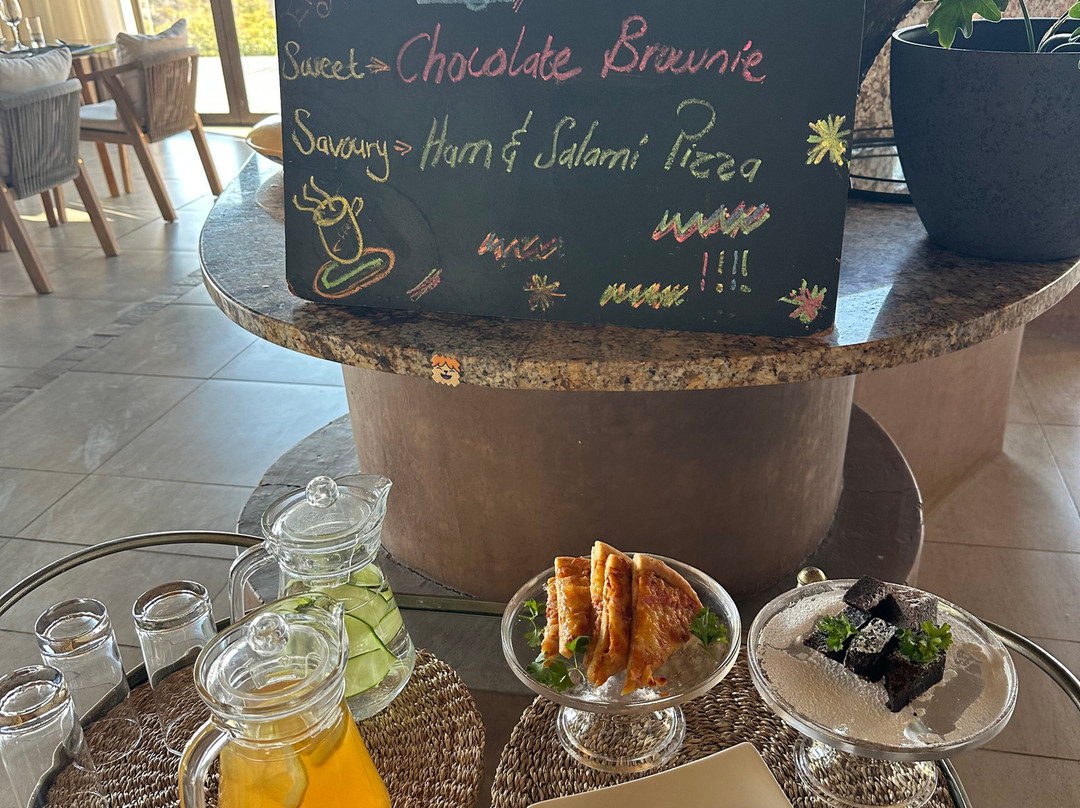 Sweet → Chocolate Brownie
Savoury → Ham & Salami Pizza
!!!!